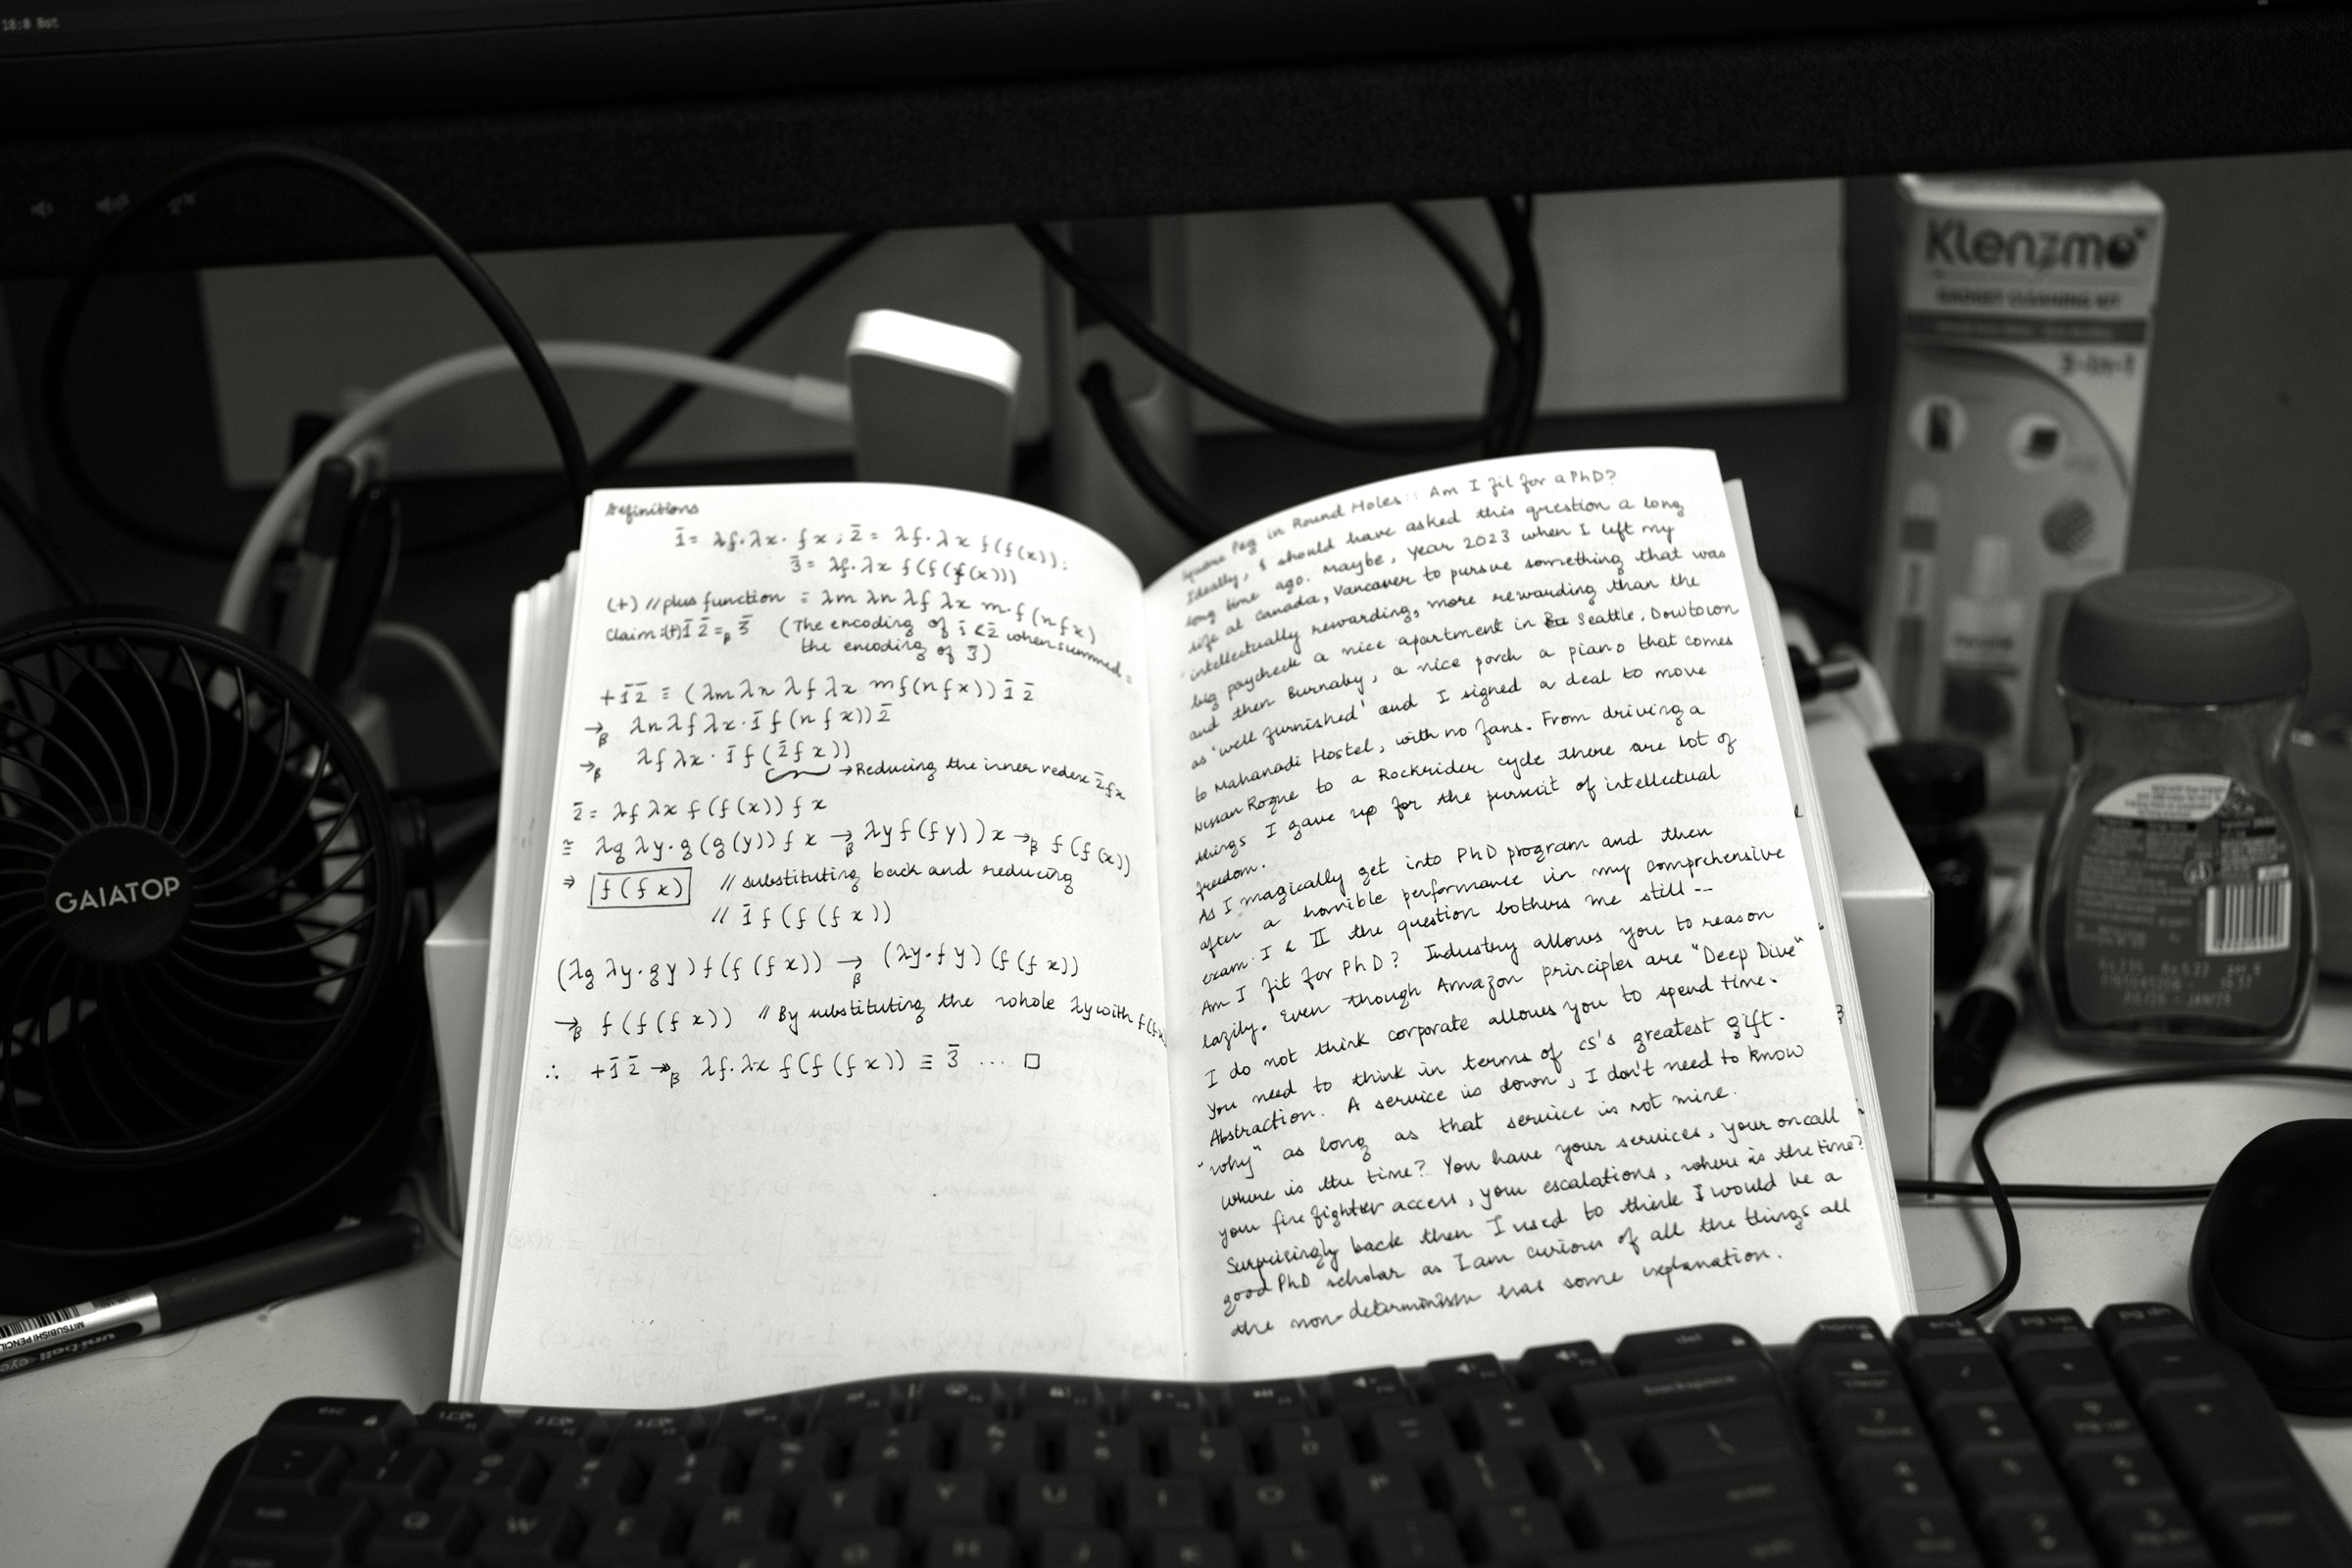 Definitions
1̄ = λf.λx. f x ; 2̄ = λf.λx f(f(x));
3̄ = λf.λx f(f(f(x)))
(+) // plus function = λm λn λf λx m.f(n f x)
Claim: (+) 1̄ 2̄ =β 3̄ (The encoding of 1̄ & 2̄ when summed =
the encoding of 3̄)
+ 1̄ 2̄ ≡ (λm λn λf λx m f(n f x)) 1̄ 2̄
→β λn λf λx. 1̄ f (n f x)) 2̄
→β λf λx. 1̄ f (2̄ f x))
→ Reducing the inner redex 2̄ f x
2̄ = λf λx f(f(x)) f x
≅ λg λy.g(g(y)) f x →β λy f(f y)) x →β f(f(x))
⇒ f(f x) // substituting back and reducing
// 1̄ f (f(f x))
(λg λy.g y) f(f(f x)) →β (λy.f y)(f(f x))
→β f(f(f x)) // By substituting the whole λy with f(fx)
∴ + 1̄ 2̄ ↠β λf.λx f(f(f x)) ≡ 3̄ ... □
Square Peg in Round Holes :: Am I fit for a PhD?
Ideally, I should have asked this question a long
long time ago. Maybe, Year 2023 when I left my
life at Canada, Vancouver to pursue something that was
intellectually rewarding, more rewarding than the
big paycheck a nice apartment in Seattle, Dowtown
and then Burnaby, a nice porch a piano that comes
as 'well furnished' and I signed a deal to move
to Mahanadi Hostel, with no fans. From driving a
Nissan Rogue to a Rockrider cycle there are lot of
things I gave up for the pursuit of intellectual
freedom.
As I magically get into PhD program and then
after a horrible performance in my comprehensive
exam I & II the question bothers me still --
Am I fit for PhD? Industry allows you to reason
lazily. Even though Amazon principles are "Deep Dive"
I do not think corporate allows you to spend time.
You need to think in terms of cs's greatest gift.
Abstraction. A service is down, I don't need to know
"why" as long as that service is not mine.
where is the time? You have your services, your oncall
your fire fighter access, your escalations, where is the time?
Surprisingly back then I used to think I would be a
good PhD scholar as I am curious of all the things all
the non-determinism has some explanation.
GAIATOP
Klenzmo
GADGET CLEANING KIT
3-in-1
MITSUBISHI PENCIL
uni-ball eye
esc
del
home
end
pg up
pg dn
backspace
Q W E R T Y U I O P
G H J K L